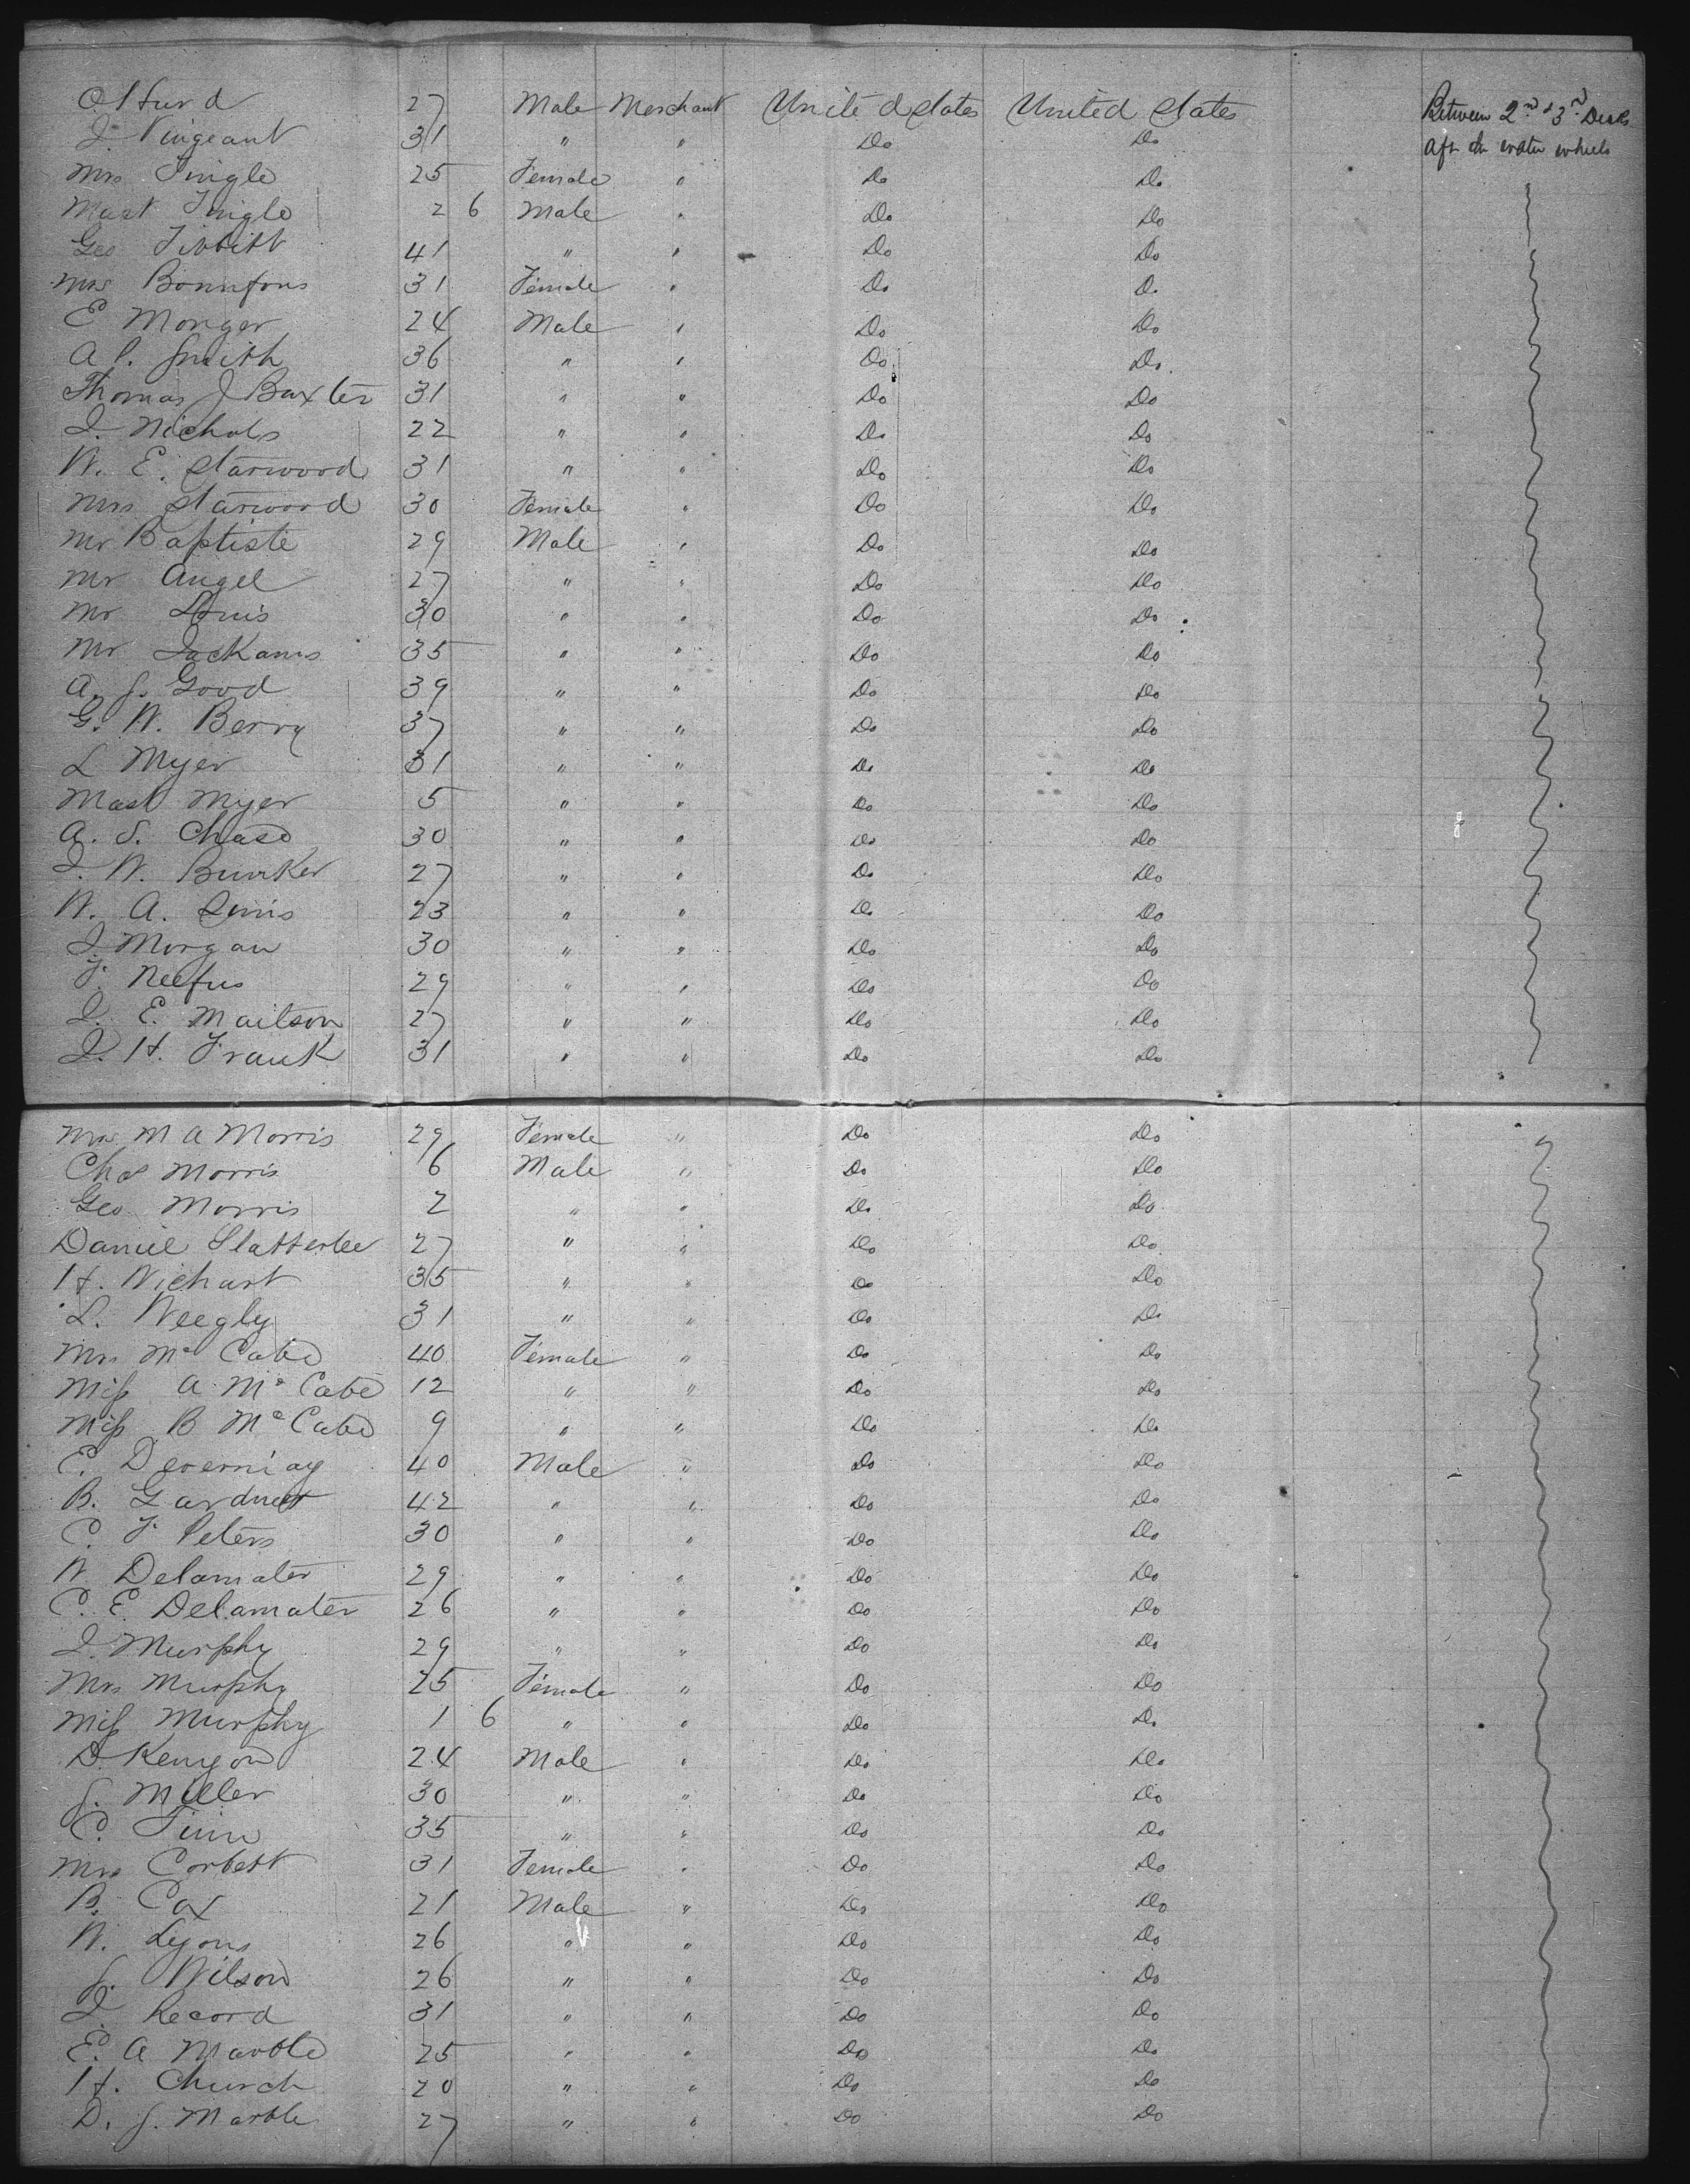 Olfurd 27 Male Merchant United States United States Between 2nd & 3rd Decks
J. Vingeant 31 " " Do Do aft the water wheels
Mrs Tingle 25 Female " Do Do
Mast Tingle 2 6 Male " Do Do
Geo Tibbitt 41 " " Do Do
Mrs Bonnifons 31 Female " Do Do
E Monger 24 Male " Do Do
A P. Smith 36 " " Do Do
Thomas J Baxter 31 " " Do Do
J. Nichols 22 " " Do Do
W. E. Starwood 31 " " Do Do
Mrs Starwood 30 Female " Do Do
Mr Baptiste 29 Male " Do Do
Mr Angel 27 " " Do Do
Mr Louis 30 " " Do Do
Mr Jackams 35 " " Do Do
A. J. Good 39 " " Do Do
G. W. Berry 37 " " Do Do
L Myer 31 " " Do Do
Mast Myer 5 " " Do Do
A. S. Chase 30 " " Do Do
J. W. Bunker 27 " " Do Do
W. A. 23 " " Do Do
J Morgan 30 " " Do Do
F. Neefus 29 " " Do Do
J. E. Maitson 27 " " Do Do
J. H. Frank 31 " " Do Do
Mrs M A Morris 29 Female " Do Do
Chas Morris 6 Male " Do Do
Geo Morris 2 " " Do Do
Daniel Slatterlee 27 " " Do Do
H. Wichart 35 " " Do Do
L. Weegly 31 " " Do Do
Mrs Mc Cabe 40 Female " Do Do
Miss A Mc Cabe 12 " " Do Do
Miss B Mc Cabe 9 " " Do Do
E. Deverniay 40 Male " Do Do
B. Gardner 42 " " Do Do
C. F Peters 30 " " Do Do
W Delamater 29 " " Do Do
C. E. Delamater 26 " " Do Do
J. Murphy 29 " " Do Do
Mrs Murphy 25 Female " Do Do
Miss Murphy 1 6 " " Do Do
D Kenyon 24 Male " Do Do
J. Miller 30 " " Do Do
C. Finn 35 " " Do Do
Mrs Corbett 31 Female " Do Do
B. Cox 21 Male " Do Do
W. Lyons 26 " " Do Do
J. Wilson 26 " " Do Do
J. Record 31 " " Do Do
E. A Marble 25 " " Do Do
H. Church 20 " " Do Do
D. J. Marble 27 " " Do Do